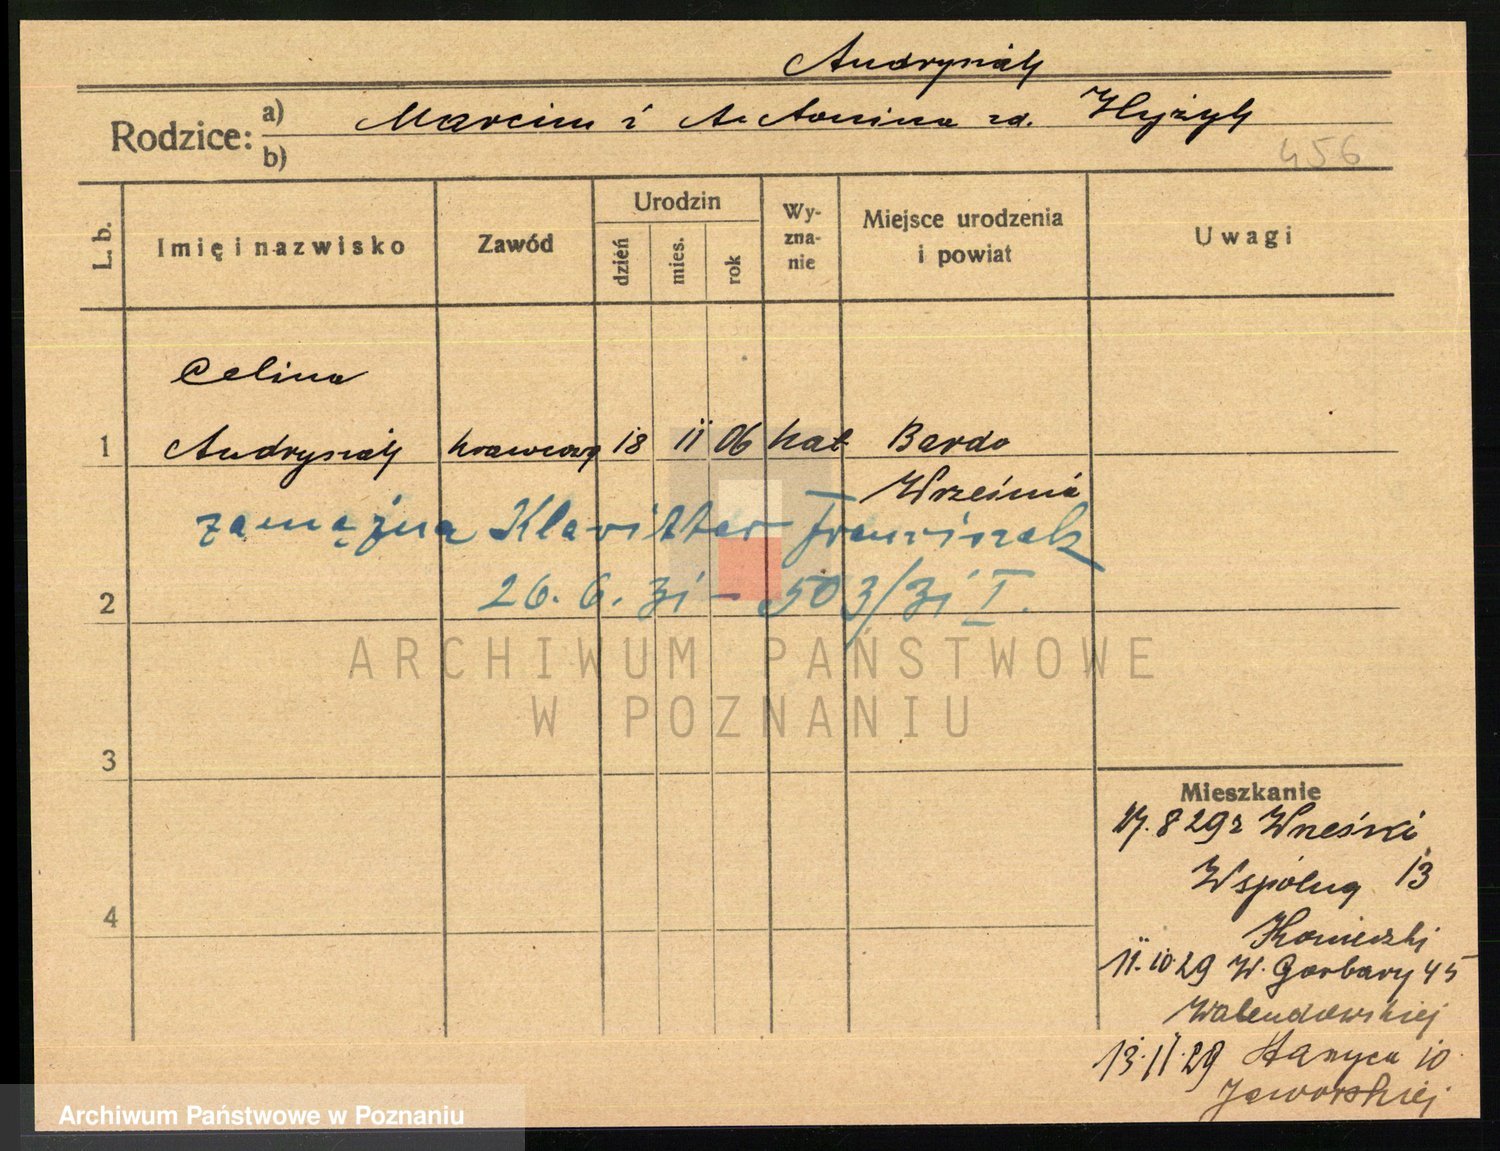 Andrysiak
Rodzice: a) Marcin i Antonina zd. Hyżyk
b)
456
L. b.
Imię i nazwisko
Zawód
Urodzin
dzień
mies.
rok
Wy-
zna-
nie
Miejsce urodzenia
i powiat
Uwagi
Celina
1 Andrysiak krawcowa 18 11 06 kat Bardo
Września
zamężna Franciszek
26.6.31 - 503/31 I.
2
ARCHIWUM PAŃSTWOWE
W POZNANIU
3
Mieszkanie
17.8 29 z Wrześni
Wspólna 13
4
11.10 29 W. Garbary 45
Walendowskiej
13.11.29 10
Jaworskiej
Archiwum Państwowe w Poznaniu